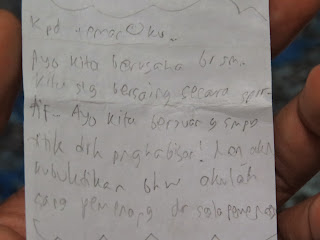 Kpd teman² ku..
Ayo kita berusaha brsma
kita slg bersaing secara spor-
tif.. Ayo kita berjuang smpe
ttik drh penghabisan!
kubuktikan bhw akulah
sang pemenang dr